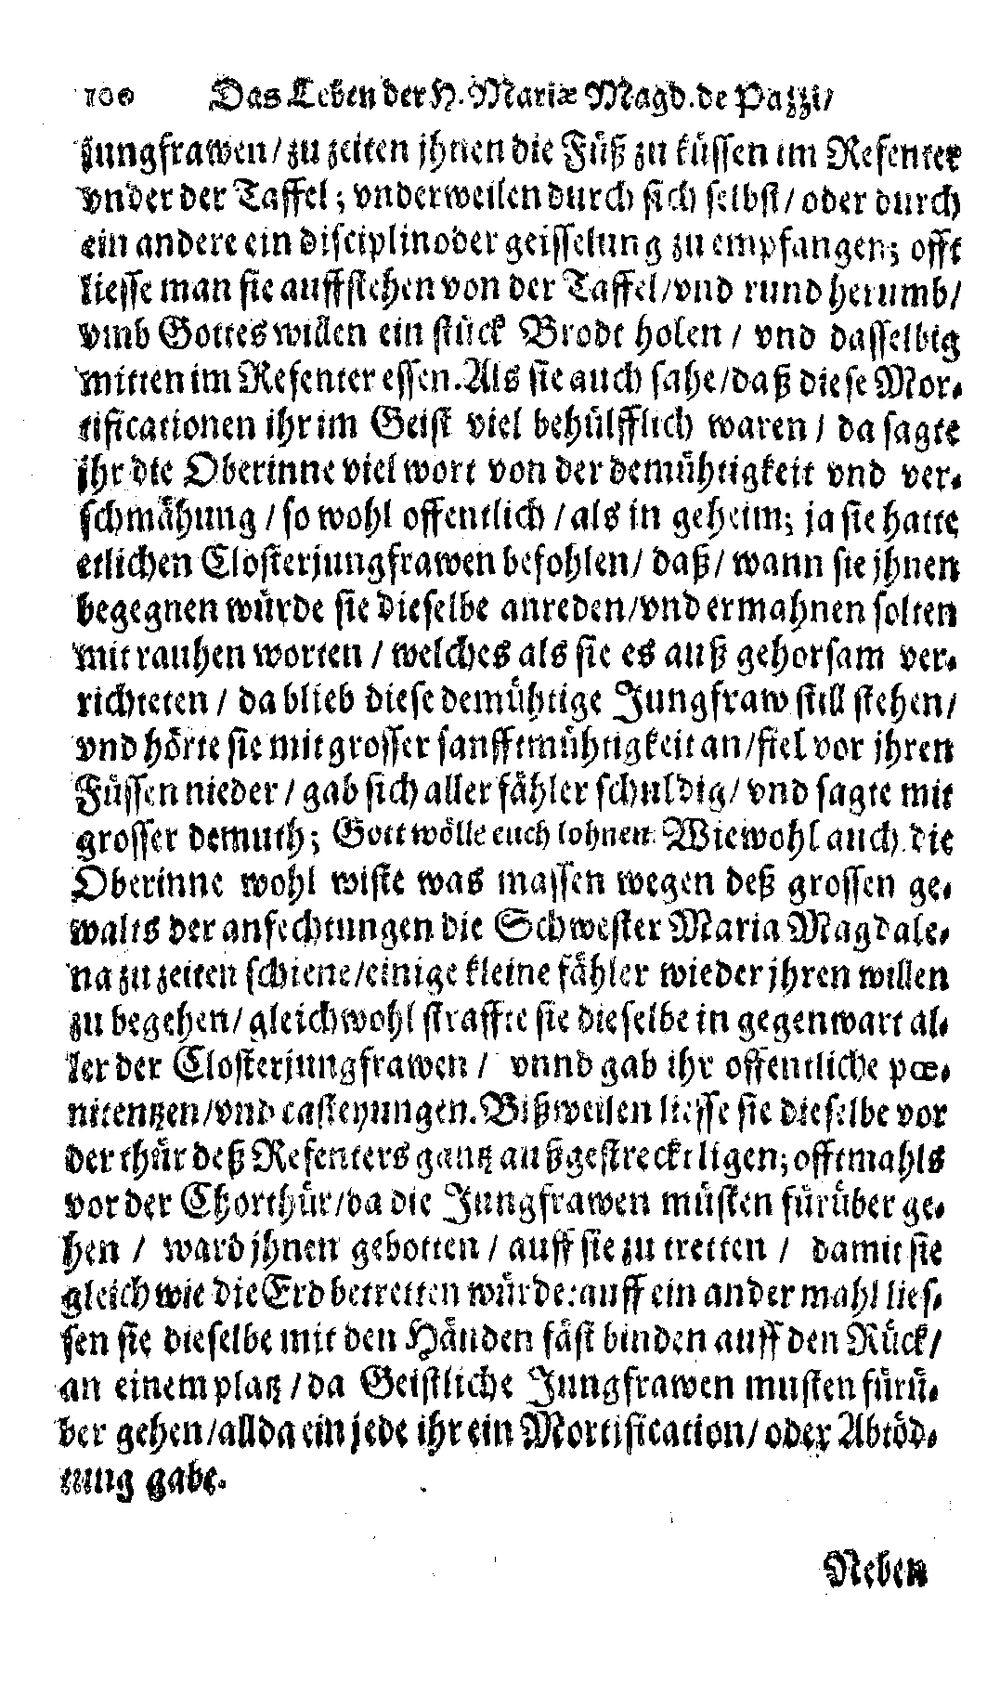 100 Das Leben der H. Mariæ Magd. de Pazzi/
Jungfrawen/ zu zeiten jhnen die Füß zu küssen im Refenter
vnder der Taffel; vnderweilen durch sich selbst/ oder durch
ein andere ein disciplin oder geisselung zu empfangen; offt
liesse man sie auffstehen von der Taffel/ vnd rund herumb/
vmb Gottes willen ein stück Brodt holen/ vnd dasselbig
mitten im Refenter essen. Als sie auch sahe/ daß diese Mor-
tificationen ihr im Geist viel behülfflich waren/ da sagte
jhr die Oberinne viel wort von der demühtigkeit vnd ver-
schmähung/ so wohl offentlich/ als in geheim; ja sie hatte
etlichen Closterjungfrawen befohlen/ daß/ wann sie jhnen
begegnen würde sie dieselbe anreden/ vnd ermahnen solten
mit rauhen worten/ welches als sie es auß gehorsam ver-
richteten/ da blieb diese demühtige Jungfraw still stehen/
vnd hörte sie mit grosser sanfftmühtigkeit an/ fiel vor jhren
Füssen nieder/ gab sich aller fähler schuldig/ vnd sagte mit
grosser demuth; Gott wölle euch lohnen. Wiewohl auch die
Oberinne wohl wiste was massen wegen deß grossen ge-
walts der anfechtungen die Schwester Maria Magdale-
na zu zeiten schiene/ einige kleine fähler wieder jhren willen
zu begehen/ gleichwohl straffte sie dieselbe in gegenwart al-
ler der Closterjungfrawen/ vnnd gab ihr offentliche pœ-
nitentzen/ vnd casteyungen. Bißweilen liesse sie dieselbe vor
der thür deß Refenters gantz außgestreckt ligen; offtmahls
vor der Chorthür/ da die Jungfrawen müsten fürüber ge-
hen/ ward jhnen gebotten/ auff sie zu tretten/ damit sie
gleich wie die Erd betretten würde: auff ein ander mahl lies-
sen sie dieselbe mit den Händen fäst binden auff den Rück/
an einem platz/ da Geistliche Jungfrawen musten fürü-
ber gehen/ allda ein jede ihr ein Mortification/ oder Abtöd-
tung gabe.
Neben